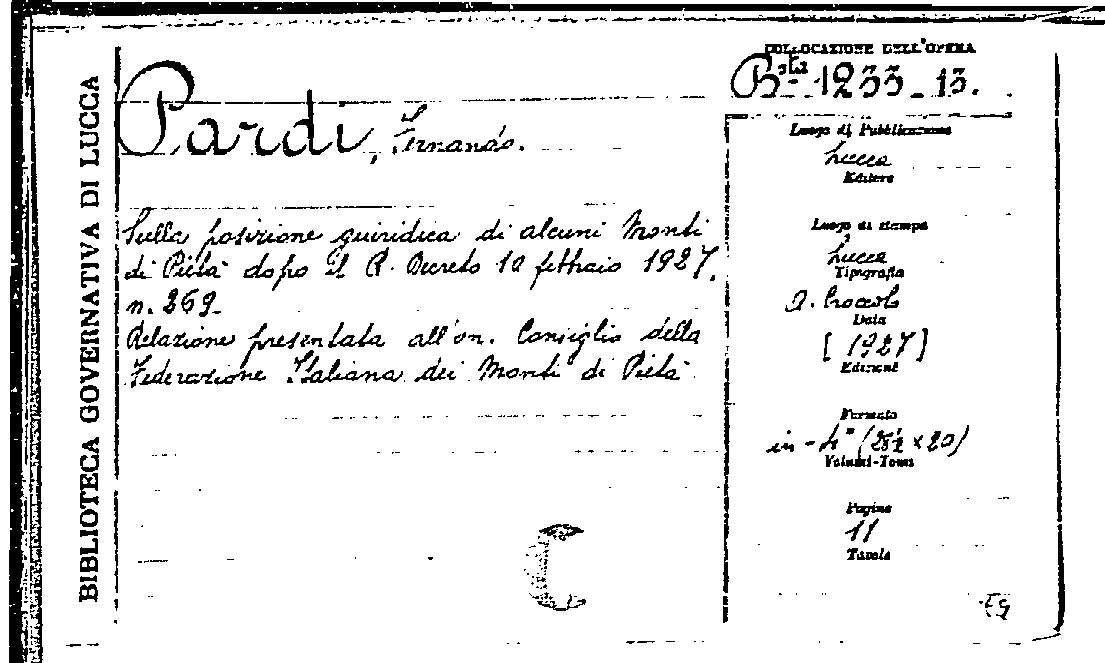 BIBLIOTECA GOVERNATIVA DI LUCCA
Pardi, Fernando.
Sulla posizione guiridica di alcuni Monti
di Pietà dopo il R. Decreto 10 febbraio 1927,
n. 269-
Relazione presentata all'on. Consiglio della
Federazione Italiana dei Monti di Pietà
COLLOCAZIONE DELL'OPERA
B.sta 1233-13.
Luogo di Pubblicazione
Lucca
Editore
Luogo di stampa
Lucca
Tipografia
Data
[1927]
Edizione
Formato
in-4° (28½ x 20)
Volumi-Tomi
Pagine
11
Tavole
C